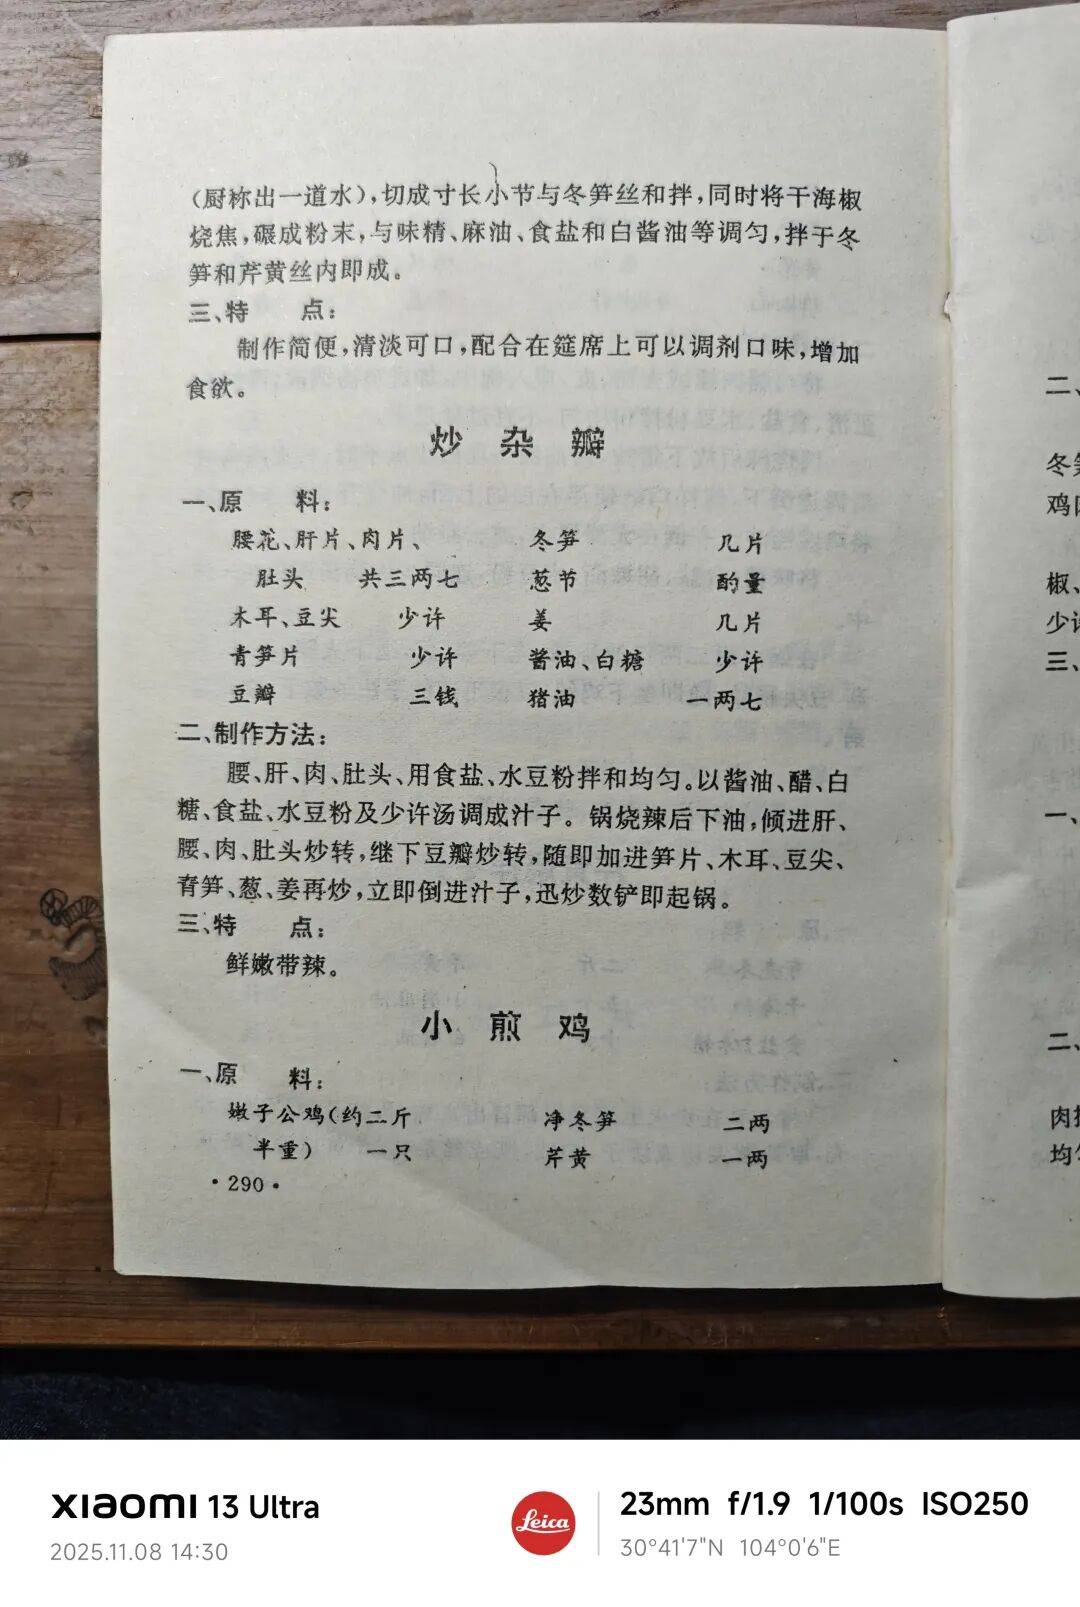 （厨称出一道水），切成寸长小节与冬笋丝和拌，同时将干海椒
烧焦，碾成粉末，与味精、麻油、食盐和白酱油等调匀，拌于冬
笋和芹黄丝内即成。
三、特　　点：
制作简便，清淡可口，配合在筵席上可以调剂口味，增加
食欲。
炒杂瓣
一、原　　料：
腰花、肝片、肉片、　　冬笋　　几片
肚头　　共三两七　　葱节　　酌量
木耳、豆尖　　少许　　姜　　几片
青笋片　　少许　　酱油、白糖　　少许
豆瓣　　三钱　　猪油　　一两七
二、制作方法：
腰、肝、肉、肚头、用食盐、水豆粉拌和均匀。以酱油、醋、白
糖、食盐、水豆粉及少许汤调成汁子。锅烧辣后下油，倾进肝、
腰、肉、肚头炒转，继下豆瓣炒转，随即加进笋片、木耳、豆尖、
青笋、葱、姜再炒，立即倒进汁子，迅炒数铲即起锅。
三、特　　点：
鲜嫩带辣。
小煎鸡
一、原　　料：
嫩子公鸡（约二斤　　净冬笋　　二两
半重）　　一只　　芹黄　　一两
·290·
二、
冬笋
鸡
椒、
少许
三、
一、
二、
肉
均匀
XIAOMI 13 Ultra
2025.11.08 14:30
Leica
23mm f/1.9 1/100s ISO250
30°41'7"N 104°0'6"E